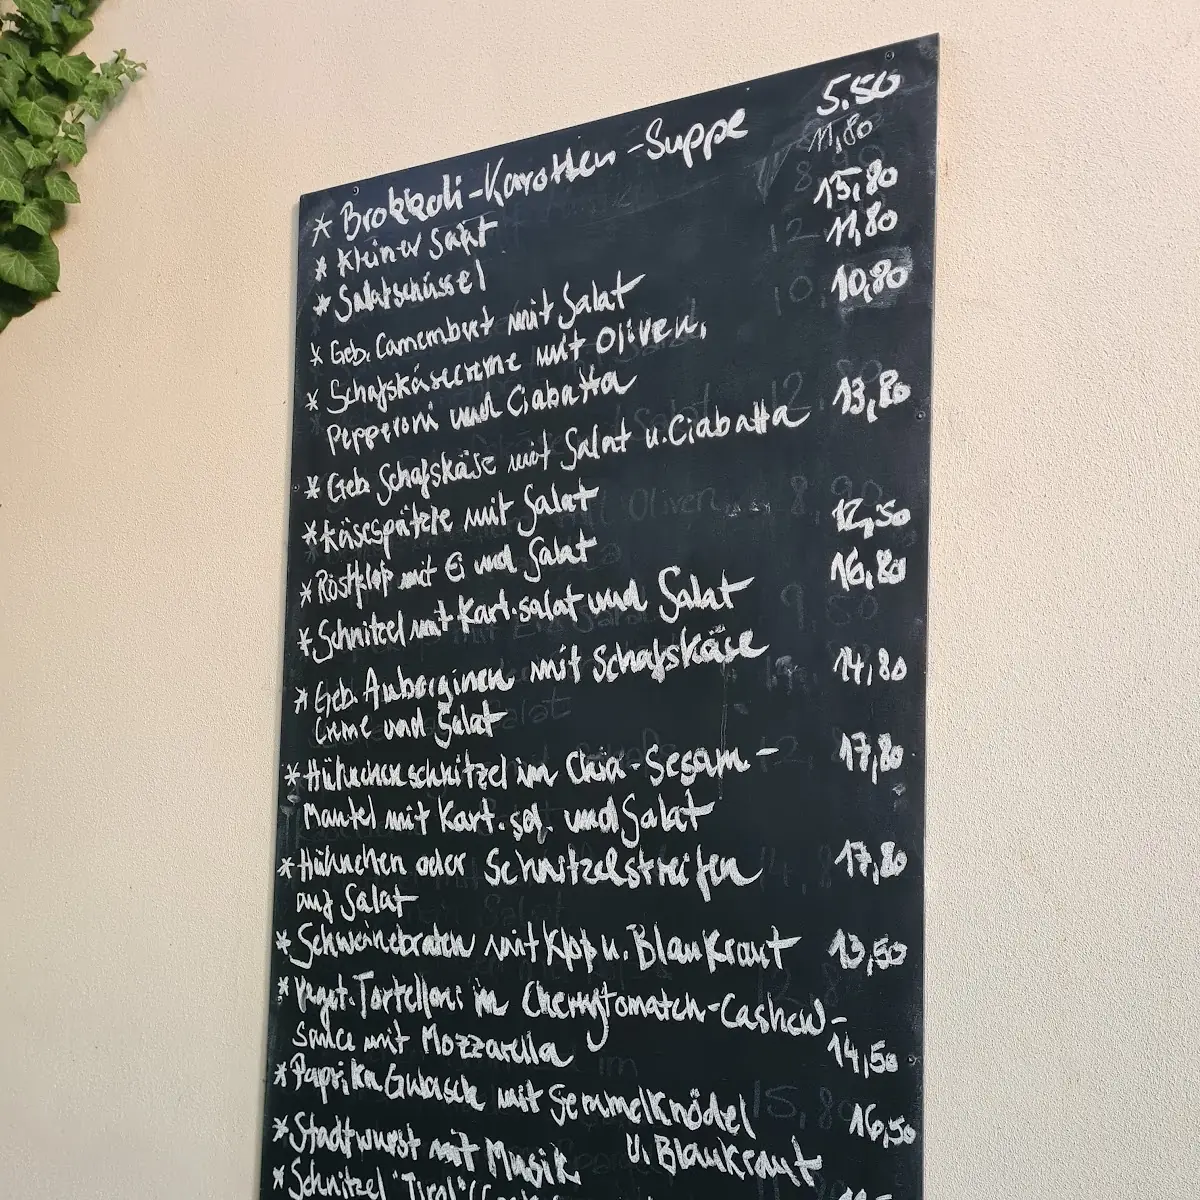 * Brokkoli-Karotten-Suppe 5.50
* Kleiner Salat 11,80
* Salatschüssel 15,80
* Geb. Camembert mit Salat 11,80
* Schafskäsecreme mit Oliven, 10,80
Pepperoni und Ciabatta
* Geb. Schafskäse mit Salat u. Ciabatta 13,80
* Käsespätzle mit Salat
* Röstklop mit Ei und Salat 12,50
* Schnitzel mit Kart.salat und Salat 16,80
* Geb. Auberginen mit Schafskäse 14,80
Creme und Salat
* Hühnchenschnitzel im Chia-Sesam- 17,80
Mantel mit Kart.sal. und Salat
* Hühnchen oder Schnitzelstreifen 17,80
auf Salat
* Schweinebraten mit Klop u. Blaukraut 13,50
* Veget. Tortelloni in Cherrytomaten-Cashew-
Sauce mit Mozzarella 14,50
* Paprika Gulasch mit Semmelknödel 16,50
u. Blaukraut
* Stadtwurst mit Musik
* Schnitzel "Tirol"